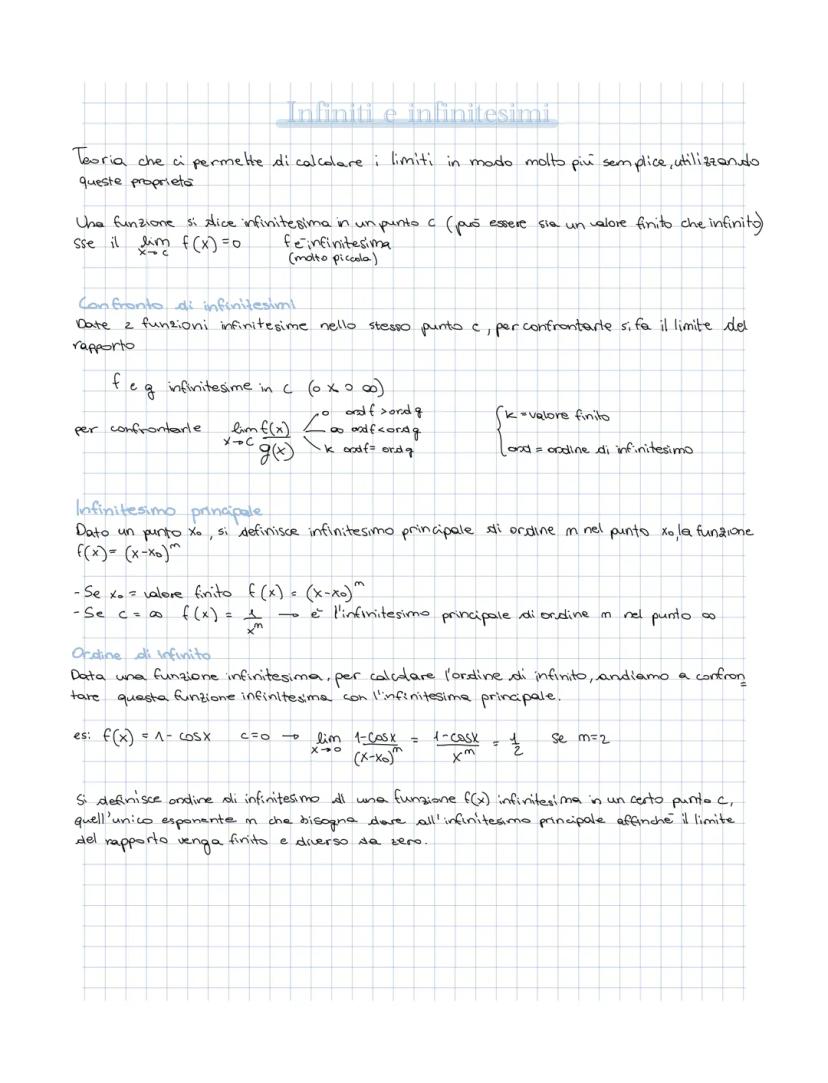 Infiniti e infinitesimi
Teoria che ci permette di calcolare i limiti in modo molto più semplice, utilizzando
queste proprietà
Una funzione si dice infinitesima in un punto c (può essere sia un valore finito che infinito)
sse il lim x→c f(x)=0 f è infinitesima
(molto piccola)
Confronto di infinitesimi
Date 2 funzioni infinitesime nello stesso punto c, per confrontarle si fa il limite del
rapporto
f e g infinitesime in c (o x o ∞)
per confrontarle lim x→c f(x)/g(x)
0 ord f > ord g
∞ ord f < ord g
k ord f = ord g
k = valore finito
ord = ordine di infinitesimo
Infinitesimo principale
Dato un punto x₀, si definisce infinitesimo principale di ordine m nel punto x₀, la funzione
f(x) = (x-x₀)^m
- Se x₀ = valore finito f(x) = (x-x₀)^m
- Se c = ∞ f(x) = 1/x^m → è l'infinitesimo principale di ordine m nel punto ∞
Ordine di infinito
Data una funzione infinitesima, per calcolare l'ordine di infinito, andiamo a confron
tare questa funzione infinitesima con l'infinitesima principale.
es: f(x) = 1 - cosx c=0 → lim x→0 1-cosx/(x-x₀)^m = 1-cosx/x^m = 1/2 se m=2
Si definisce ordine di infinitesimo di una funzione f(x) infinitesima in un certo punto c,
quell'unico esponente m che bisogna dare all'infinitesimo principale affinché il limite
del rapporto venga finito e diverso da zero.